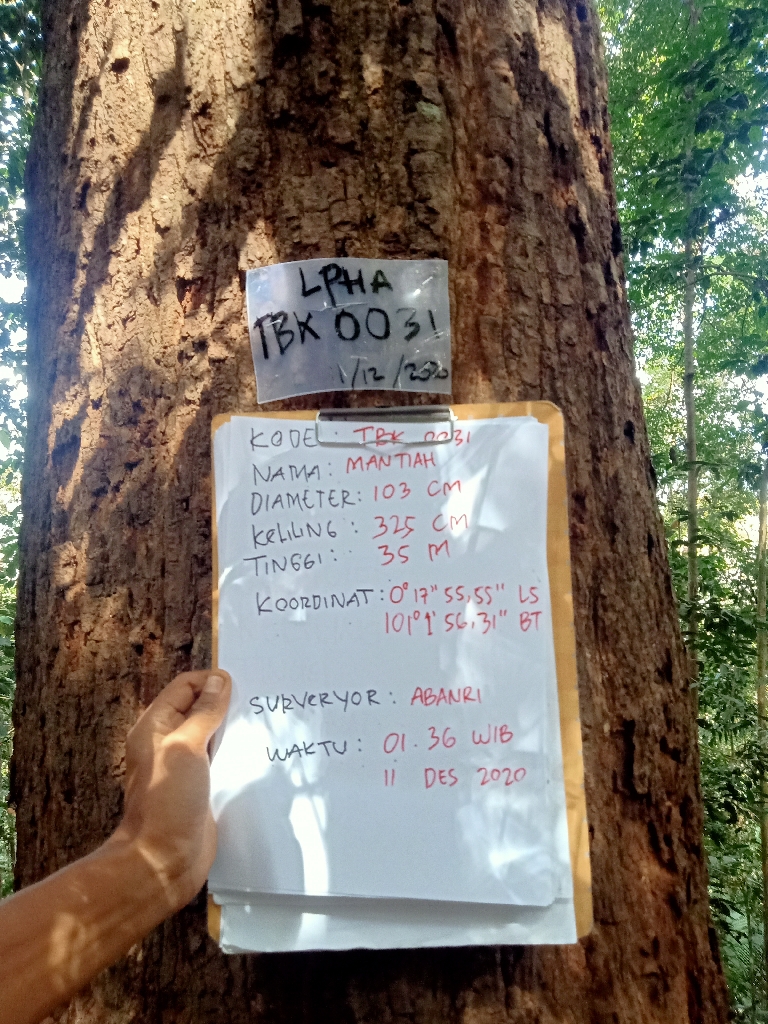 LPHA
TBK 0031
1/12/2020
KODE : TBK 0031
NAMA : MANTIAH
DIAMETER : 103 CM
KELILING : 325 CM
TINGGI : 35 M
KOORDINAT : 0° 17" 55,55" LS
101° 1' 56,31" BT
SURVERYOR : ABANRI
WAKTU : 01.36 WIB
11 DES 2020